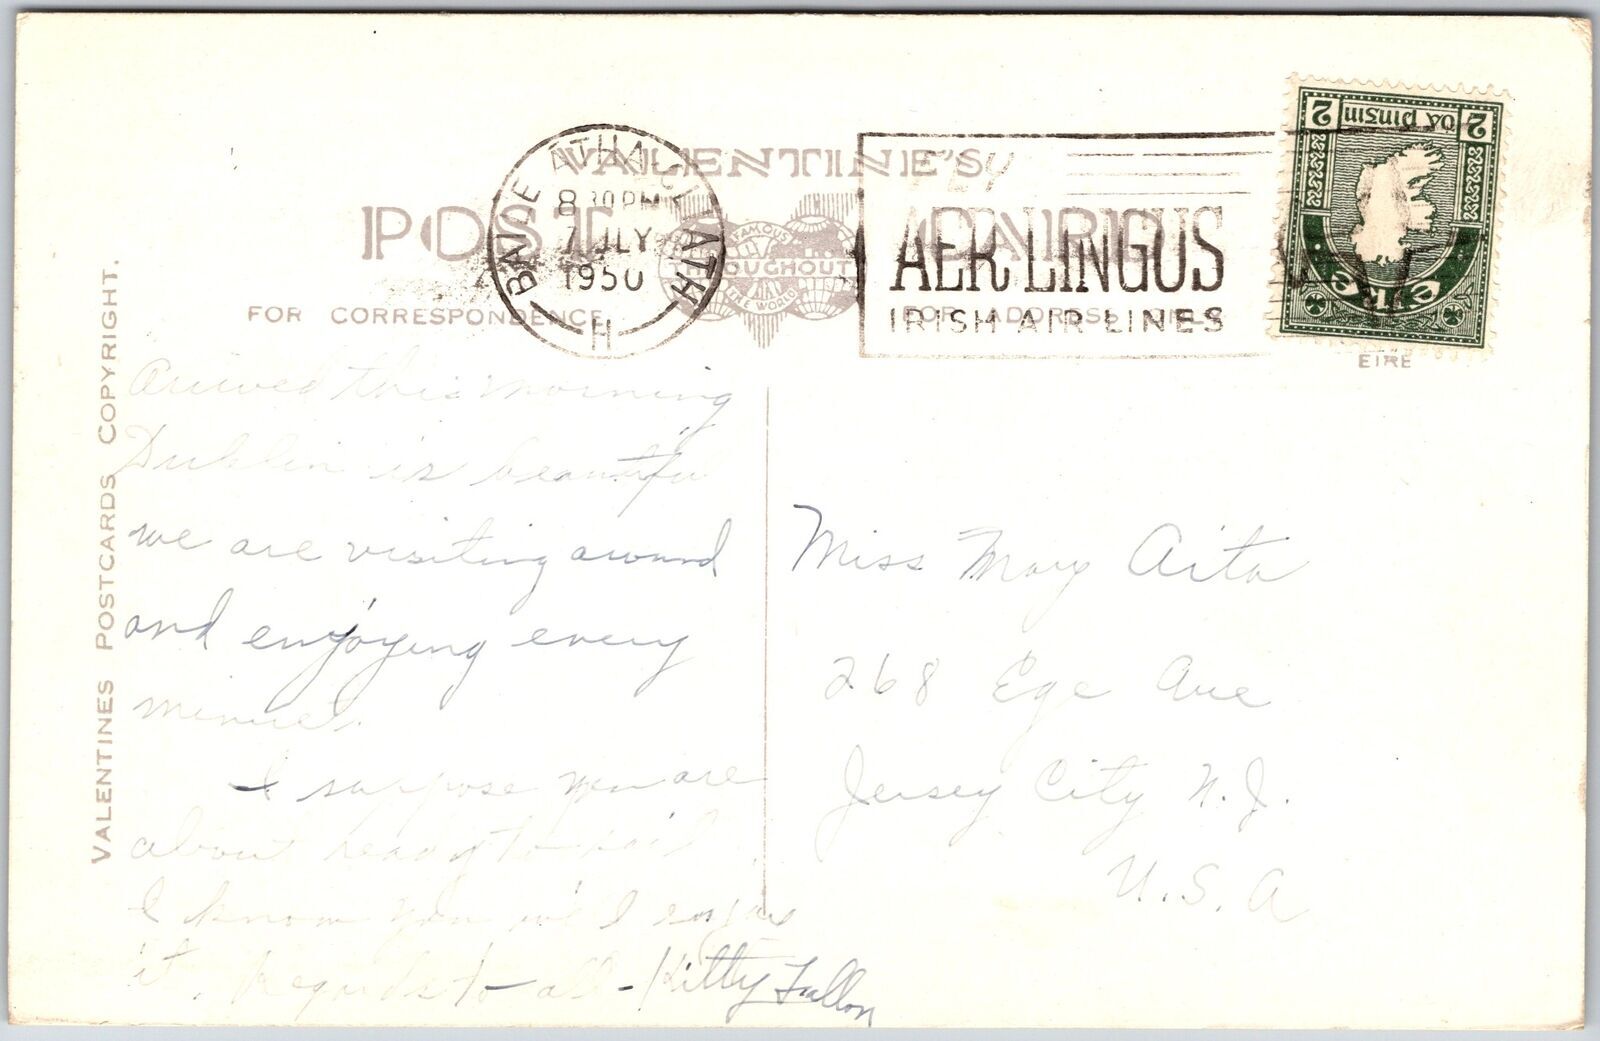 VALENTINE'S
POST CARD
FAMOUS
THROUGHOUT
THE WORLD
FOR CORRESPONDENCE
FOR ADDRESS ONLY
BAILE ÁTHA CLIATH
8 30 PM
7 JLY
1950
H
FLY
AER LINGUS
IRISH AIR LINES
2 DA PINSIN 2
EIRE
EIRE
VALENTINES POSTCARDS COPYRIGHT.
Arrived this morning
Dublin is beautiful
we are visiting around
and enjoying every
minute.
I suppose you are
about ready to sail.
I know you will enjoy
it. Regards to all - Kitty Fallon
Miss Mary Aita
268 Ege Ave
Jersey City N.J.
U.S.A